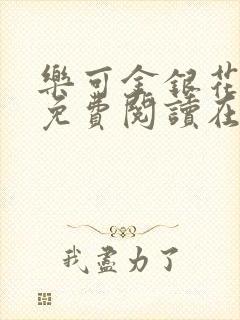 樂可金銀花
免費閱讀在
我盡力了